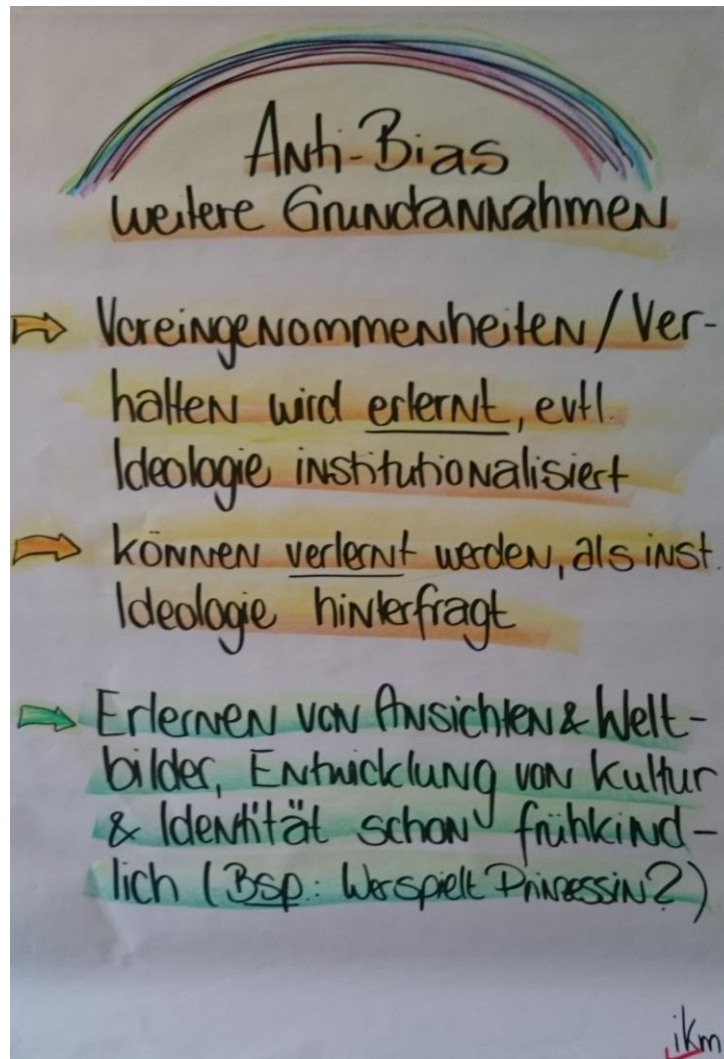 Anti-Bias
weitere Grundannahmen
Voreingenommenheiten/Ver-
halten wird erlernt, evtl.
Ideologie institutionalisiert
können verlernt werden, als inst.
Ideologie hinterfragt
Erlernen von Ansichten & Welt-
bilder, Entwicklung von Kultur
& Identität schon frühkind-
lich (Bsp: Wer spielt Prinzessin?)
ikm